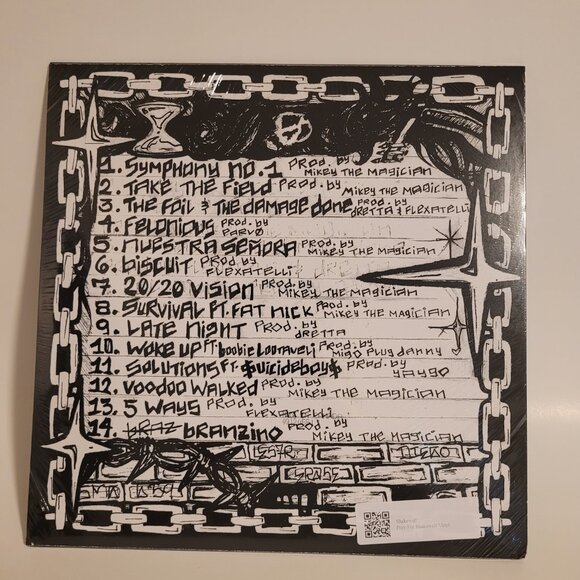 1. Symphony no.1 Prod. by Mikey The Magician
2. Take The Field Prod. by Mikey The Magician
3. The Foil & The Damage Done Prod. by Dretta & Flexatelli
4. Felonious Prod. by Parvo
5. Nuestra Señora Prod. by Mikey The Magician
6. Biscuit Prod by Flexatelli
7. 20/20 Vision Prod. by Mikey The Magician
8. Survival Ft. Fat Nick Prod. by Mikey The Magician
9. Late Night Prod. by Dretta
10. Woke Up Ft. Boobie Lootaveli Prod. by Migo Plug Danny
11. Solutions Ft. $uicideboy$ Prod. by Yaygo
12. Voodoo Walked Prod. by Mikey The Magician
13. 5 Ways Prod. by Flexatelli
14. Braz Branzino Prod. by Mikey The Magician
Shakewell